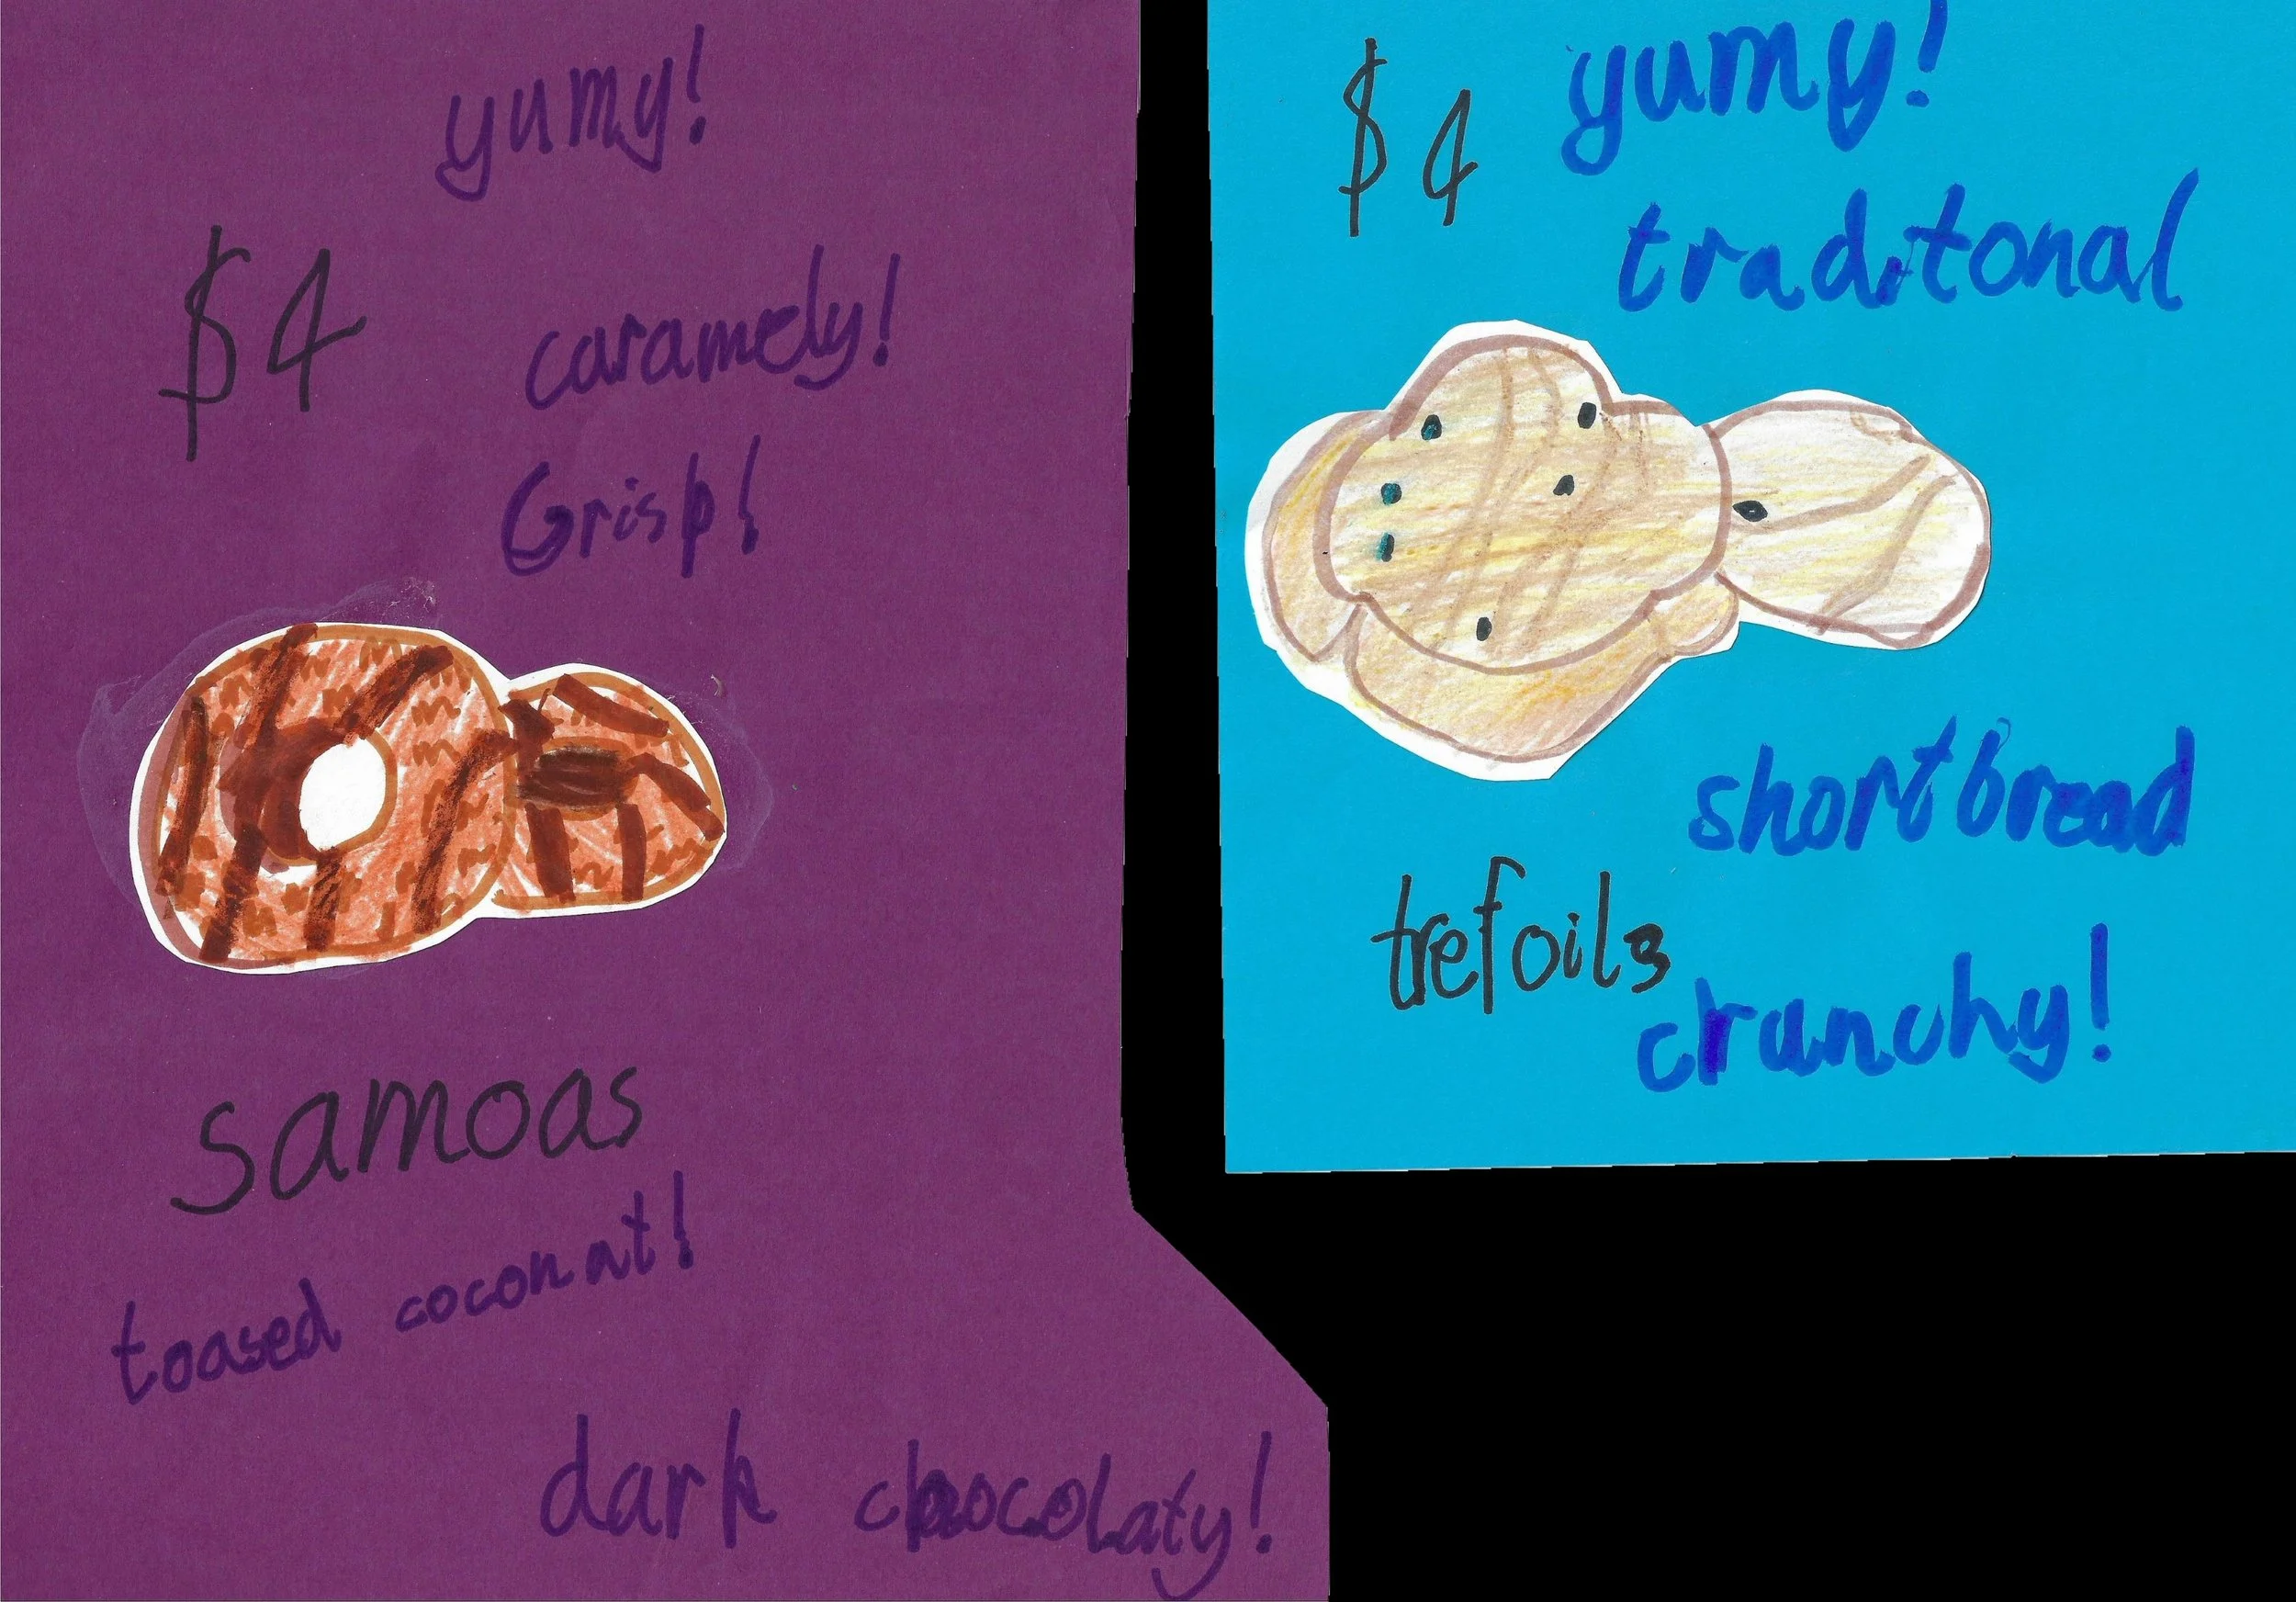 yumy!
$4
caramely!
Grisp!
samoas
toased coconat!
dark chocolaty!
$4
yumy!
traditonal
shortbread
trefoils
crunchy!